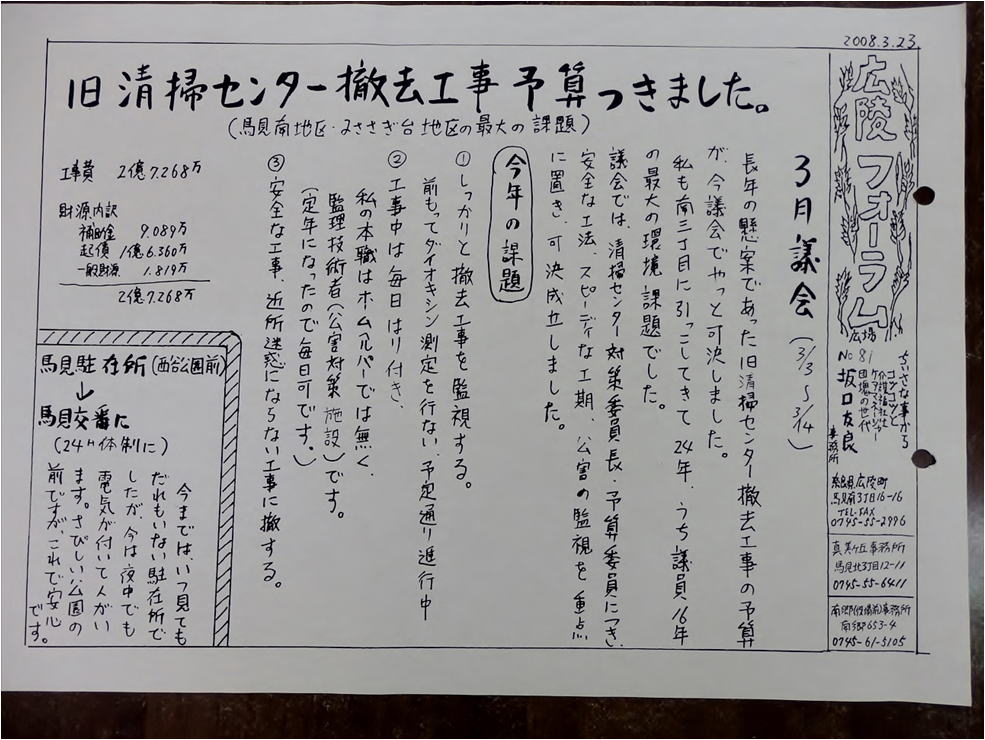 2008.3.23
広陵フォーラム
広場
No 81
ちいさな事から
コツコツと
介護福祉士
ケアマネージャー
団塊の世代
坂口友良
事務所
奈良県広陵町
馬見南3丁目16-16
TEL・FAX
0745-55-2996
真美ヶ丘事務所
馬見北3丁目12-11
0745-55-6411
南郷(役場前)事務所
南郷653-4
0745-61-5105
旧清掃センター撤去工事予算つきました。
(馬見南地区・みささぎ台地区の最大の課題)
3月議会(3/3〜3/14)
長年の懸案であった旧清掃センター撤去工事の予算
が、今議会でやっと可決しました。
私も南三丁目に引っこしてきて24年、うち議員16年
の最大の環境課題でした。
議会では、清掃センター対策委員長・予算委員につき、
安全な工法、スピーディな工期、公害の監視を重点
に置き、可決成立しました。
今年の課題
①しっかりと撤去工事を監視する。
前もってダイオキシン測定を行ない、予定通り進行中
②工事中は毎日はり付き、
私の本職はホームヘルパーでは無く、
監理技術者(公害対策施設)です。
(定年になったので毎日可です。)
③安全な工事、近所迷惑にならない工事に撤する。
工事費 2億7.268万
財源内訳
補助金 9.089万
起債 1億6.360万
一般財源 1.819万
2億7.268万
馬見駐在所(西谷公園前)
↓
馬見交番に
(24H体制に)
今までは、いつ見ても
だれもいない駐在所で
したが、今は夜中でも
電気が付いて人がい
ます。さびしい公園の
前ですが、これで安心
です。